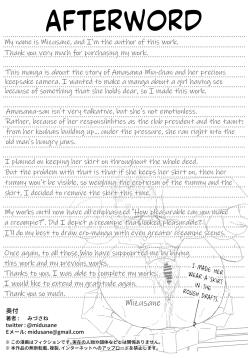 AFTERWORD
My name is Mizusane, and I'm the author of this work.
Thank you very much for purchasing my work.
This manga is about the story of Amasana Miu-chan and her precious
keepsake camera. I wanted to make a manga about a girl having sex
because of something that she holds dear, so I made this work.
Amasana-san isn't very talkative, but she's not emotionless.
Rather, because of her responsibilities as the club president and the taunts
from her kouhais building up... under the pressure, she ran right into the
old man's hungry jaws.
I planned on keeping her skirt on throughout the whole deed.
But the problem with that is that if she keeps her skirt on, then her
tummy won't be visible, so weighing the eroticism of the tummy and the
skirt, I decided to remove the skirt this time.
My works until now have all emphasized "How pleasurable can you make
a creampie?", "Did I depict a creampie that looked pleasurable?"
I'll do my best to draw ero-manga with even greater creampie decisions!
Once again, to all those who have supported me by buying
this work and my previous works.
Thanks to you, I was able to complete my works.
I would like to extend my gratitude again.
Thank you so much.
Mizusane
I MADE HER
WEAR A SKIRT
IN THE
ROUGH DRAFTS.
奥付
著者： みづさね
twitter : @midusane
Eメール: midusane@gmail.com
※この漫画はフィクションです。実在の人物や団体などとは関係ありません。
※本作品の無断転載、複製、インターネットへのアップロードを禁止します。